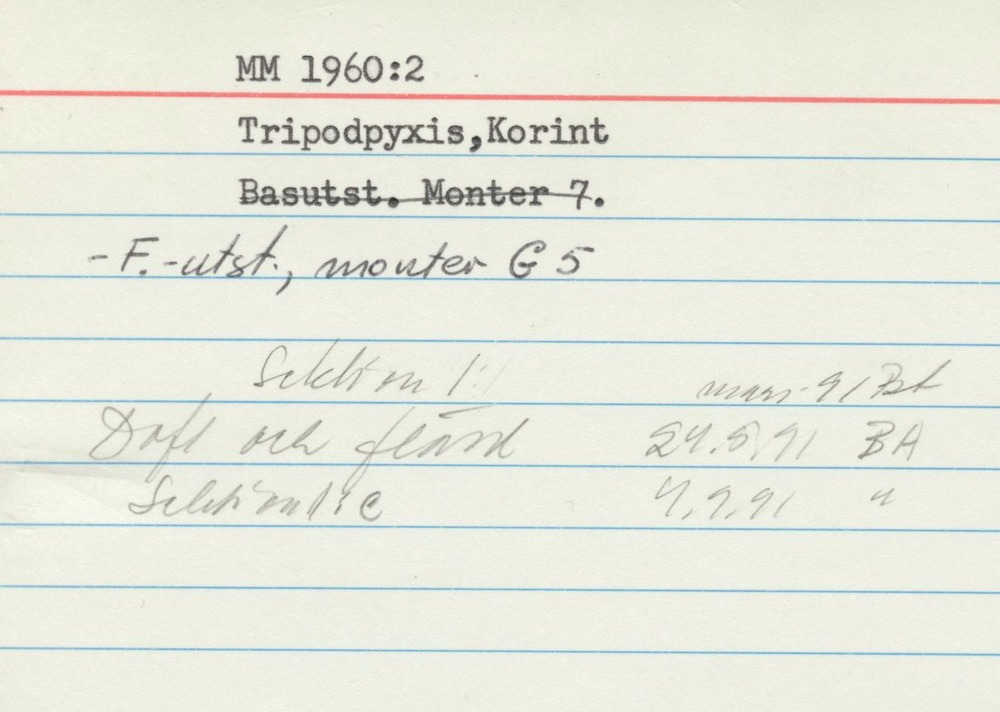 MM 1960:2
Tripodpyxis,Korint
Basutst. Monter 7.
-F.-utst., monter G 5
Sektion 1:1 mars-91 Bt
Doft och flärd 24.5.91 BA
Sektion 1:c 4.9.91 "